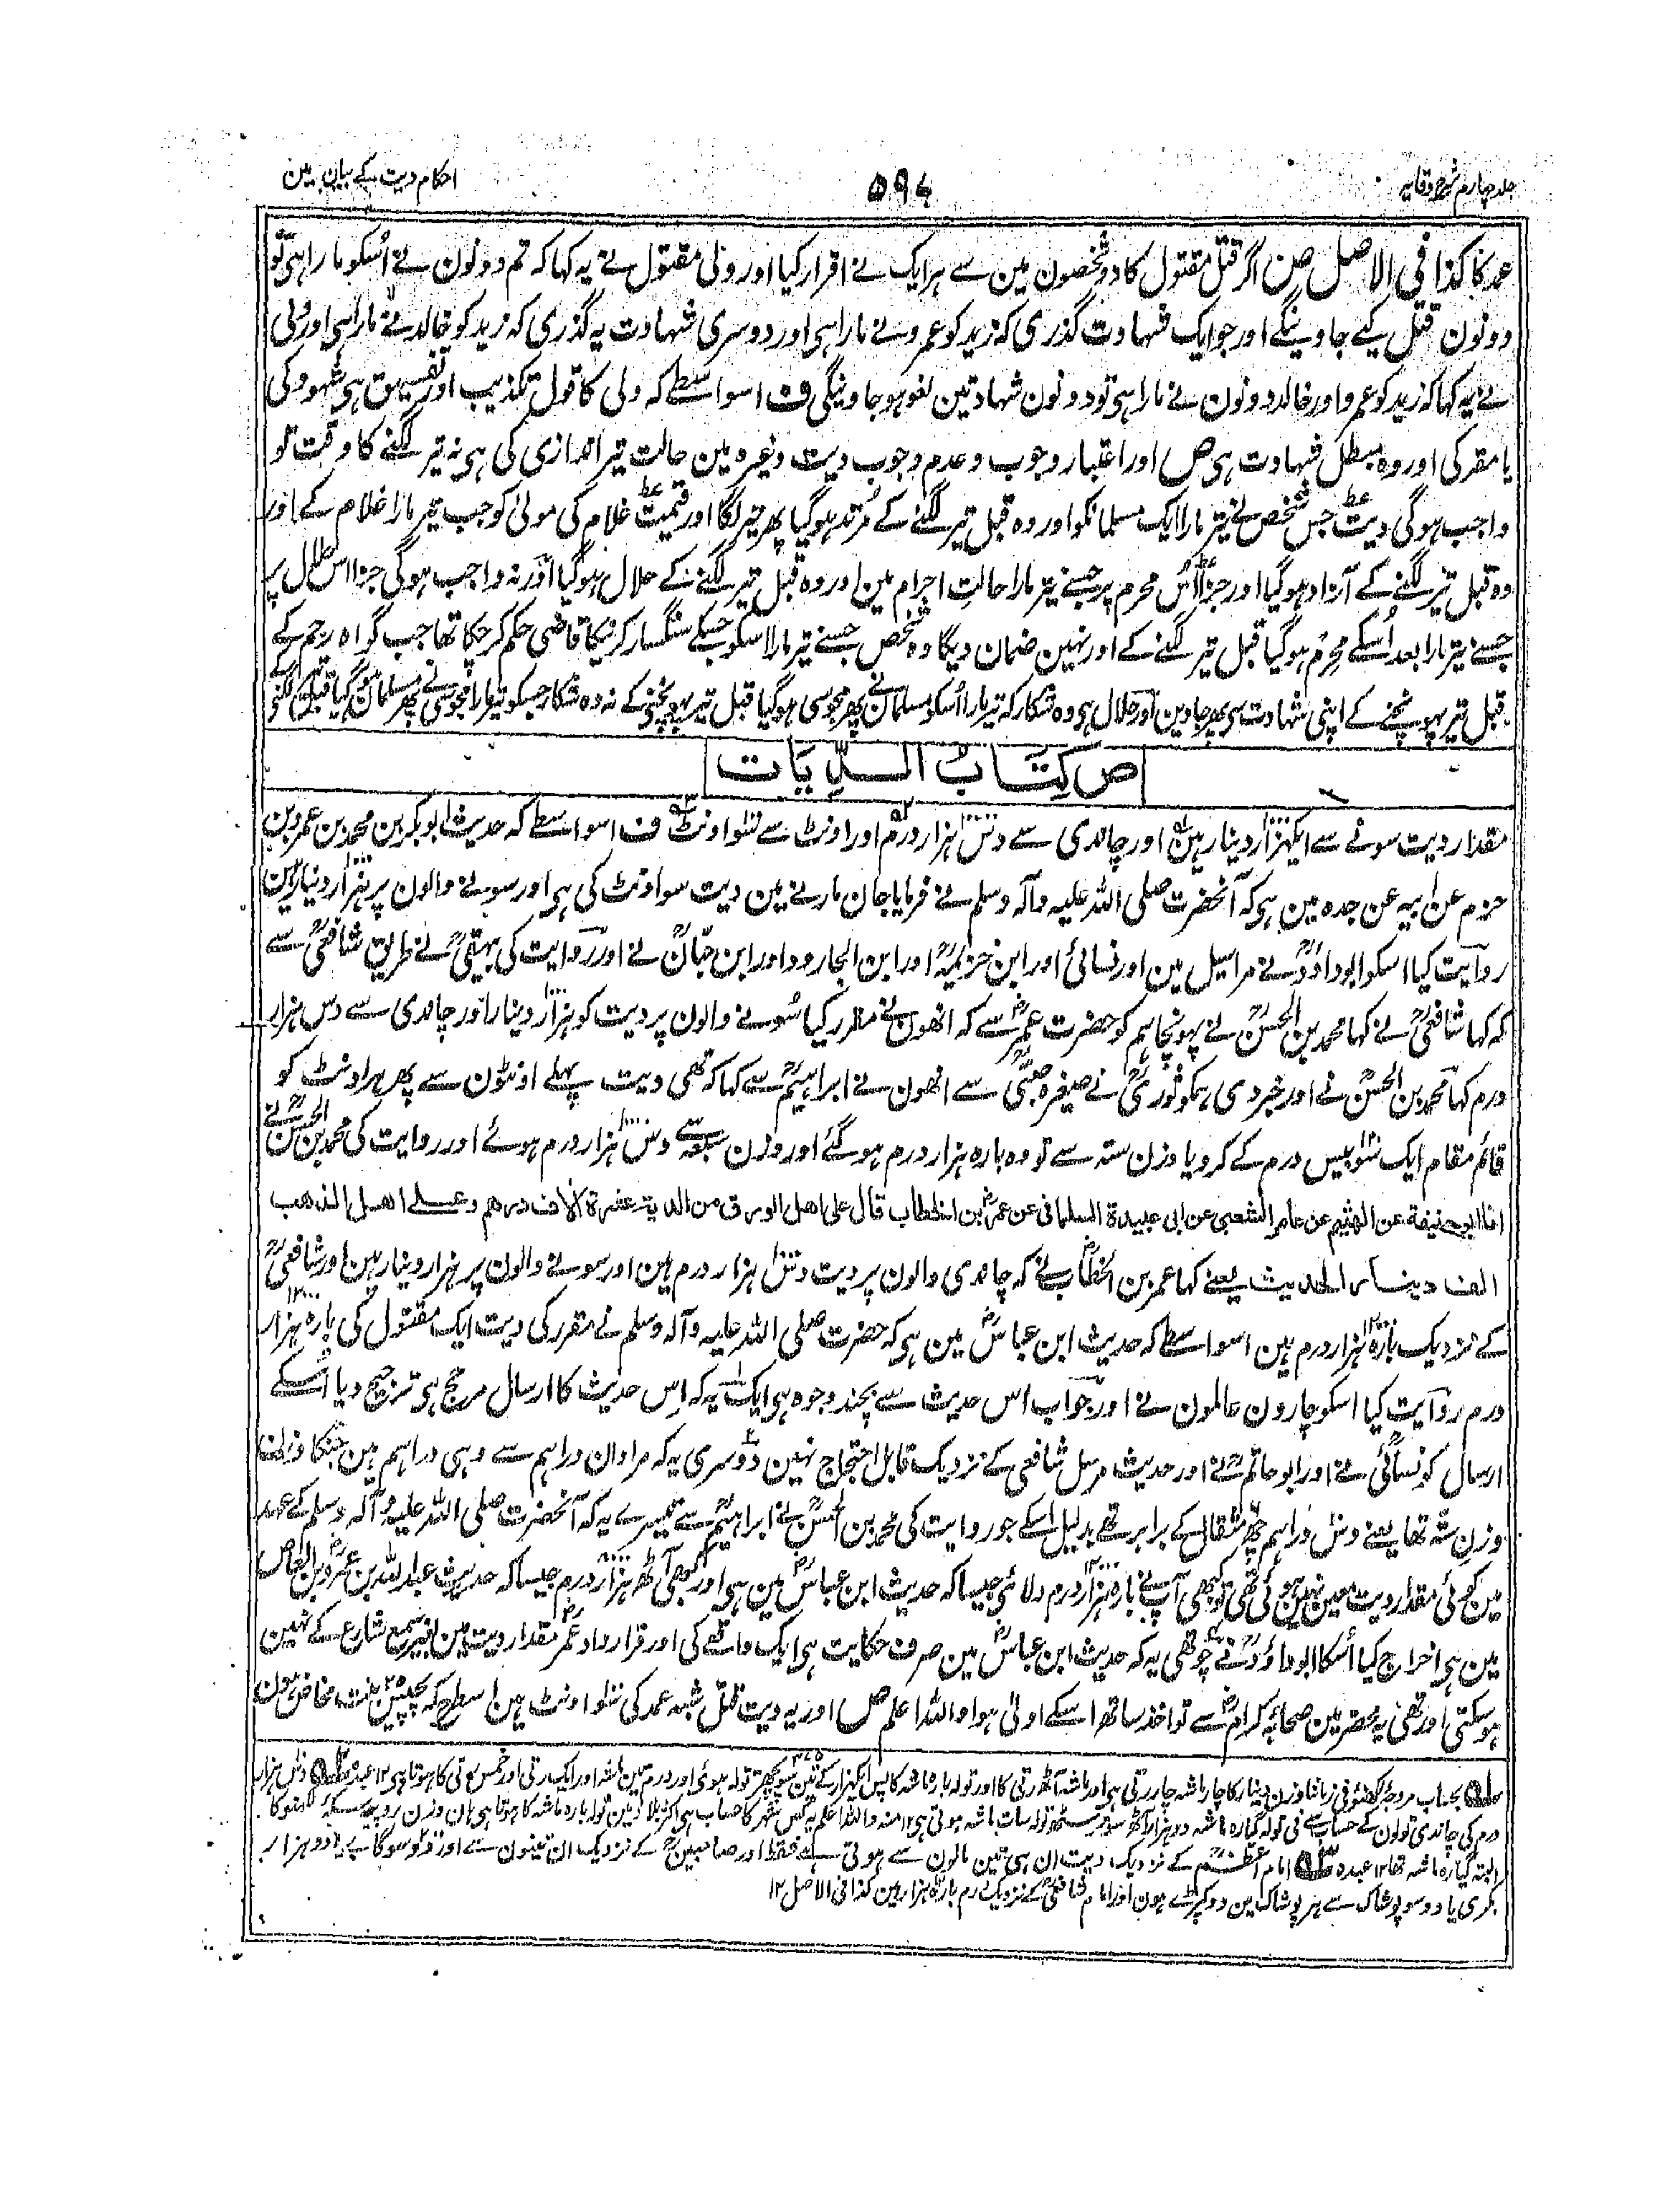 جلد چہارم شرح وقایہ
۵۹۷
احکام دیت کے بیان مین
عمد کا کذا فی الاصل ص اگر قتل مقتول کا دو شخصون مین سے ہر ایک نے اقرار کیا اور ولی مقتول نے یہ کہا کہ تم دونون نے اُسکو مارا ہی تو
دونون قتل کیے جاوینگے اور جو ایک شہادت گذری کہ زید کو عمرو نے مارا ہی اور دوسری شہادت یہ گذری کہ زید کو خالد نے مارا ہی اور ولی
نے یہ کہا کہ زید کو عمرو اور خالد دونون نے مارا ہی تو دونون شہادتین لغو ہو جاوینگی ف اسواسطے کہ ولی کا قول تکذیب اور تفسیق ہی شہود کی
یا مقر کی اور وہ مبطل شہادت ہی ص اور اعتبار وجوب و عدم وجوب دیت وغیرہ مین حالت تیر اندازی کی ہی نہ تیر لگنے کا وقت تو
واجب ہوگی دیت جس شخص نے تیر مارا ایک مسلمانکو اور وہ قبل تیر لگنے کے مُرتد ہوگیا پھر تیر لگا اور قیمت غلام کی مولیٰ کو جب تیر مارا غلام کے اور
وہ قبل تیر لگنے کے آزاد ہوگیا اور جزا اُس محرم پر جسنے تیر مارا حالتِ احرام مین اور وہ قبل تیر لگنے کے حلال ہوگیا اور نہ واجب ہوگی جزا اس حلال پر
جسنے تیر مارا بعد اُسکے محرِم ہوگیا قبل تیر لگنے کے اور نہین ضمان دیگا وہ شخص جسنے تیر مارا اسکو جسکے سنگسار کرنیکا قاضی حکم کر چکا تھا جب گواہ رجم کے
قبل تیر پہونچنے کے اپنی شہادت سے پھر جاوین اور حلال ہی وہ شکار کہ تیر مارا اُسکو مسلمان نے پھر مجوسی ہوگیا قبل تیر پہونچنے کے نہ وہ شکار جسکو تیر مارا مجوسی نے پھر مسلمان ہوگیا قبل تیر لگنے کے
ص کِتَابُ الدِّیَات
مقدار دیت سونے سے ایکہزار دینار ہین اور چاندی سے دس ہزار درم اور اونٹ سے ننلو اونٹ ف اسواسطے کہ حدیث ابوبکر بن محمد بن عمرو بن
حزم عن ابیہ عن جدہ مین ہی کہ آنحضرت صلی اللہ علیہ وآلہ وسلم نے فرمایا جان مارنے مین دیت سو اونٹ کی ہی اور سونے والون پر ہزار دینار ہین
روایت کیا اسکو ابو داؤدؒ نے مراسیل مین اور نسائی اور ابن خزیمہؒ اور ابن الجارود اور ابن حبانؒ نے اور روایت کی بیہقیؒ نے طریق شافعیؒ سے
کہ کہا شافعیؒ نے کہا محمد بن الحسنؒ نے پہونچا ہم کو حضرت عمرؓ سے کہ انھون نے مقرر کیا سُونے والون پر دیت کو ہزار دینار اور چاندی سے دس ہزار
درم کہا محمد بن الحسنؒ نے اور خبر دی ہمکو ثوریؒ نے مغیرہ ضبیؒ سے انھون نے ابراہیمؒ سے کہا کہ تھی دیت پہلے اونٹون سے پھر ہر اونٹ کو
قائم مقام ایک سو بیس درم کے کر دیا وزن ستہ سے تو وہ بارہ ہزار درم ہو گئے اور وزن سبعہ سے دس ہزار درم ہوئے اور روایت کی محمد بن الحسنؒ نے
انا ابو حنیفۃ عن الھیثم عن عامر الشعبی عن ابی عبیدۃ السلمانی عن عمرؓ بن الخطاب قال علی اھل الورق من الدیۃ عشرۃ الاف درھم وعلے اھل الذھب
الف دینار الحدیث یعنے کہا عمر بن الخطابؓ نے کہ چاندی والون پر دیت دس ہزار درم ہین اور سونے والون پر ہزار دینار ہین اور شافعیؒ
کے نزدیک بارہ ہزار درم ہین اسواسطے کہ حدیث ابن عباسؓ مین ہی کہ حضرت صلی اللہ علیہ وآلہ وسلم نے مقرر کی دیت ایک مقتول کی بارہ ہزار
درم روایت کیا اسکو چارون عالمون نے اور جواب اس حدیث سے بچند وجوہ ہی ایک یہ کہ اِس حدیث کا ارسال مرجح ہی ترجیح دیا اسکے
ارسال کو نسائی نے اور ابو حاتمؒ نے اور حدیث مرسل شافعی کے نزدیک قابل احتجاج نہین دوسری یہ کہ مراد ان دراہم سے وہی دراہم ہین جنکا وزن
وزن ستہ تھا یعنے دس دراہم چھ مثقال کے برابر تھے بدلیل اسکے جو روایت کی محمد بن الحسنؒ نے ابراہیمؒ سے تیسرے یہ کہ آنحضرت صلی اللہ علیہ وآلہ وسلم کے عہد
مین کوئی مقدار دیت معین نہین ہوئی تھی تو کبھی آپ نے بارہ ہزار درم دلائی جیسا کہ حدیث ابن عباسؓ مین ہی اور کبھی آٹھ ہزار درم جیسا کہ حدیث عبداللہ بن عمروؓ بن العاص
مین ہی اخراج کیا اُسکا ابو داؤدؒ نے چوتھی یہ کہ حدیث ابن عباسؓ مین صرف حکایت ہی ایک واقعے کی اور قرارداد عمرؓ مقدار دیت مین بغیر سمع شارع کے نہین
ہو سکتی اور تھی یہ محضر مین صحابہ کرامؓ سے تو اخذ ساتھ اسکے اولیٰ ہوا واللہ اعلم ص اور یہ دیت قتل شبہ عمد کی ننلو اونٹ ہین اسطرح کہ پچیس بنت مخاض ہون
لہ بحساب مروجہ لکھنؤ فی زماننا وزن دینار کا چار ماشہ چار رتی ہی اور ماشہ آٹھ رتی کا اور تولہ بارہ ماشہ کا پس ایکہزار کے تین سو پچھتر تولہ ہوئی اور درم تین ماشہ اور ایک رتی اور خمس رتی کا ہوتا ہی ۱۲ عبدہ ۲ہ دس ہزار
درم کی چاندی تولون کے حساب سے فی تولہ گیارہ ماشہ دو ہزار آٹھ سو تولہ سات ماشہ ہوتی ہی ۱۲ منہ واللہ اعلم یہ کس شہر کا حساب ہی اکثر بلاد مین تولہ بارہ ماشہ کا ہوتا ہی ہان وزن روپیہ سکہ لکھنؤ کا
البتہ گیارہ ماشہ تھا ۱۲ عبدہ ۳ہ امام اعظمؒ کے نزدیک دیت ان ہی تین مالون سے ہوتی ہے فقط اور صاحبینؒ کے نزدیک ان تینون سے اور دو سو گائے یا دو ہزار
بکری یا دو سو پوشاک سے ہر پوشاک مین دو کپڑے ہون اور امام شافعیؒ کے نزدیک درم بارہ ہزار ہین کذا فی الاصل ۱۲